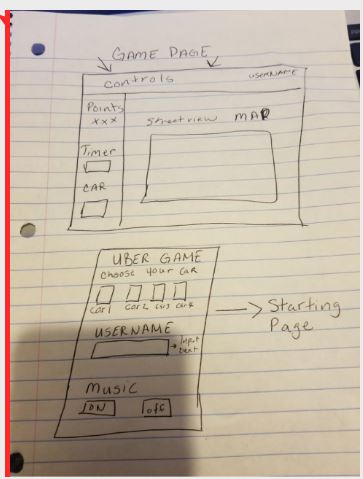 GAME PAGE
controls USERNAME
Points
xxx
Street view MAP
Timer
CAR
UBER GAME
choose your car
car1 car2 car3 car4
USERNAME
Input text
Starting Page
MUSIC
ON off